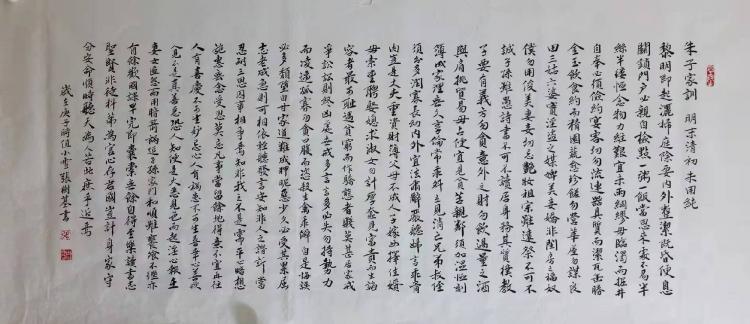 朱子家訓 明末清初朱用純
黎明即起灑掃庭除要內外整潔既昏便息
關鎖門戶必親自檢點一粥一飯當思來處不易半
絲半縷恒念物力維艱宜未雨綢繆毋臨渴而掘井
自奉必須儉約宴客切勿流連器具質而潔瓦缶勝
金玉飲食約而精園蔬愈珍饈勿營華屋勿謀良
田三姑六婆實淫盜之媒婢美妾嬌非閨房之福奴
僕勿用俊美妻妾切忌艷妝祖宗雖遠祭祀不可不
誠子孫雖愚詩書不可不讀居身務期質樸教
子要有義方勿貪意外之財勿飲過量之酒
與肩挑貿易毋占便宜見貧苦親鄰須加溫恤刻
薄成家理無久享倫常乖舛立見消亡兄弟叔侄
須分多潤寡長幼內外宜法肅辭嚴聽婦言乖骨
肉豈是丈夫重資財薄父母不成人子嫁女擇佳婿
毋索重聘娶媳求淑女勿計厚奩見富貴而生諂
容者最可恥遇貧窮而作驕態者賤莫甚居家戒
爭訟訟則終凶處世戒多言言多必失勿恃勢力
而凌逼孤寡勿貪口腹而恣殺生禽乖僻自是悔誤
必多頹惰自甘家道難成狎昵惡少久必受其累屈
志老成急則可相依輕聽發言安知非人之譖訴當
忍耐三思因事相爭焉知非我之不是需平心暗想
施惠無念受恩莫忘凡事當留餘地得意不宜再往
人有喜慶不可生妒忌心人有禍患不可生喜幸心善欲
人見不是真善惡恐人知便是大惡見色而起淫心報在
妻女匿怨而用暗箭禍延子孫家門和順雖饔飧不繼亦
有餘歡國課早完即囊橐無餘自得至樂讀書志在
聖賢非徒科第為官心存君國豈計身家守
分安命順時聽天為人若此庶乎近焉
歲在庚子時值小雪張樹基書